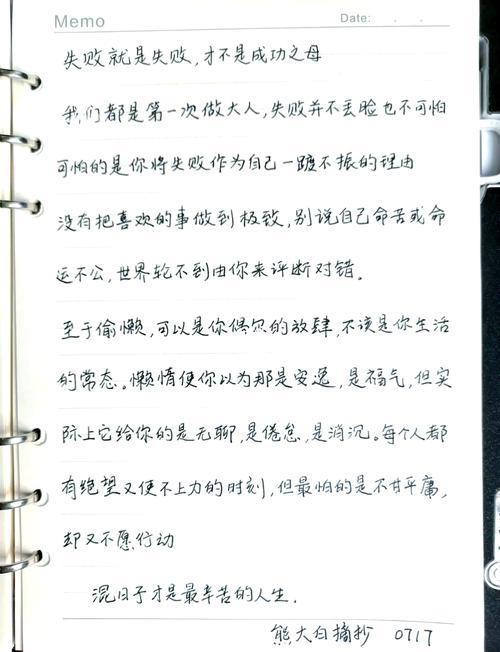 Memo Date: . .
失败就是失败,才不是成功之母
我们都是第一次做大人,失败并不丢脸也不可怕
可怕的是你将失败作为自己一蹶不振的理由
没有把喜欢的事做到极致,别说自己命苦或命
运不公,世界轮不到由你来评断对错。
至于偷懒,可以是你偶尔的放肆,不该是你生活
的常态。懒惰使你以为那是安逸,是福气,但实
际上它给你的是无聊,是倦怠,是消沉。每个人都
有绝望又使不上力的时刻,但最怕的是不甘平庸,
却又不愿行动
混日子才是最辛苦的人生.
熊大白摘抄 0717